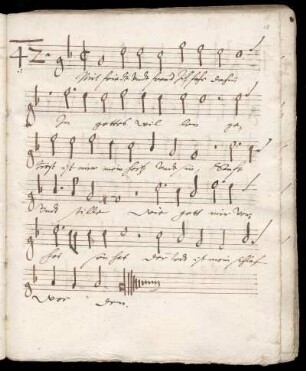 42.
Mit fried und freud ich fahr dahin
In gottes wil len ge
trost ist mir mein hertz und sin, sanfft
und stille wie gott mir ver
der todt ist mein schlaf
wor den.